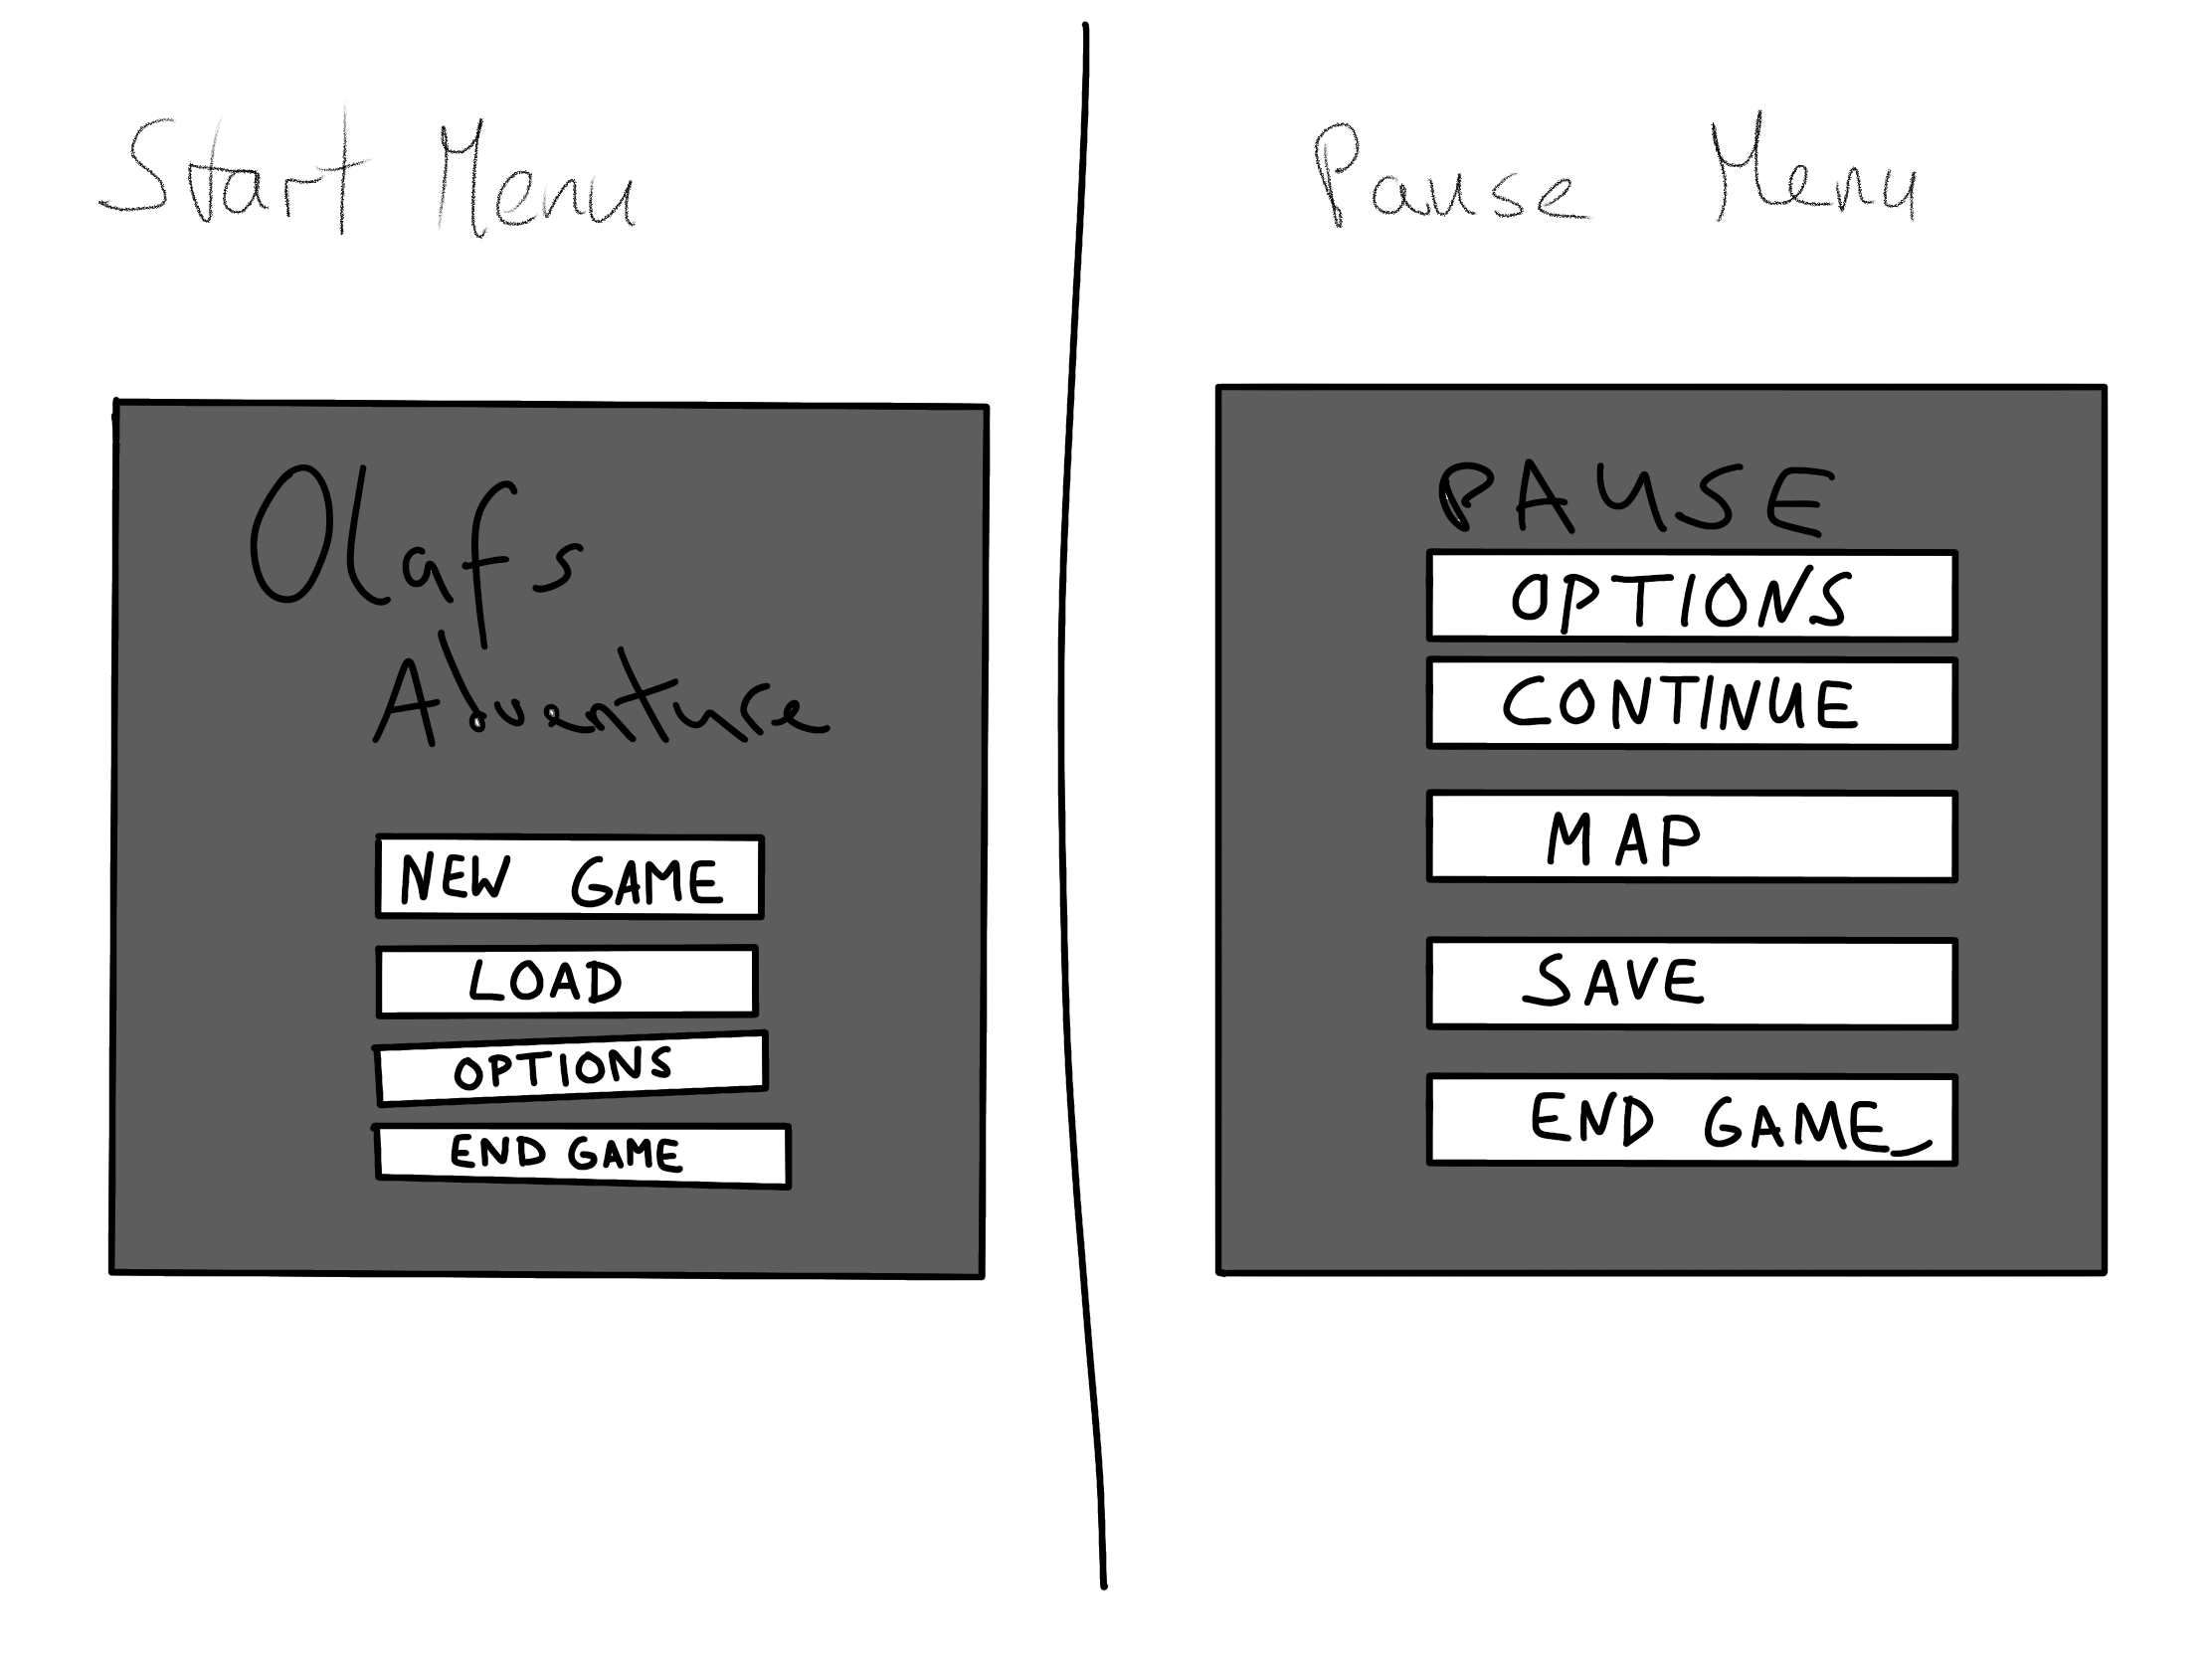 Start Menu
Olafs
Adventure
NEW GAME
LOAD
OPTIONS
END GAME
Pause Menu
PAUSE
OPTIONS
CONTINUE
MAP
SAVE
END GAME